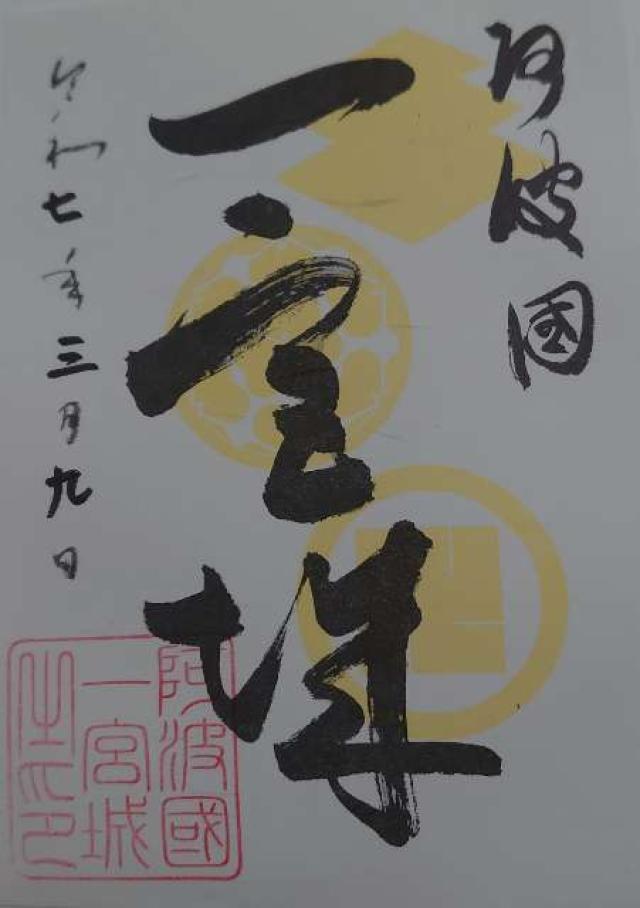 阿波國
一宮城
令和七年三月九日
阿波國
一宮城
之印